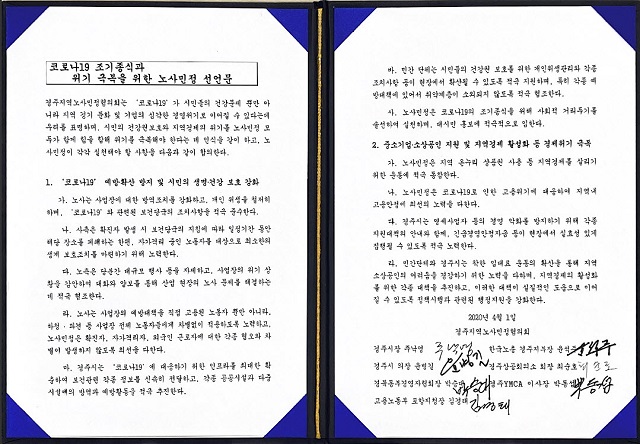 코로나19 조기종식과
위기 극복을 위한 노사민정 선언문
경주지역노사민정협의회는 "코로나19"가 시민들의 건강문제 뿐만 아
니라 지역 경기 둔화 및 기업의 심각한 경영위기로 이어질 수 있다는데
우려를 표명하며, 시민의 건강권보호와 지역경제의 위기를 노사민정 모
두가 함께 힘을 합해 위기를 극복해야 한다는 데 인식을 같이 하고, 노
사민정이 각각 실천해야 할 사항을 다음과 같이 합의한다.
1. "코로나19" 예방·확산 방지 및 시민의 생명·건강 보호 강화
가. 노사는 사업장에 대한 방역조치를 강화하고, 개인 위생을 철저히
하며, "코로나19"와 관련된 보건당국의 조치사항을 적극 준수한다.
나. 사측은 확진자 발생 시 보건당국의 지침에 따라 일정기간 동안
해당 장소를 폐쇄하는 한편, 자가격리 중인 노동자를 대상으로 최소한의
생계 보호조치를 마련하기 위해 노력한다.
다. 노측은 당분간 대규모 행사 등을 자제하고, 사업장의 위기 상
황을 감안하여 대화와 양보를 통해 산업 현장의 노사 문제를 해결하는
데 적극 협조한다.
라. 노사는 사업장의 예방대책을 직접 고용된 노동자 뿐만 아니라,
하청·파견 등 사업장 전체 노동자들에게 차별없이 적용하도록 노력하고,
노사민정은 확진자, 자가격리자, 외국인 근로자에 대한 각종 혐오와 차
별이 발생하지 않도록 최선을 다한다.
마. 경주시는 "코로나19"에 대응하기 위한 인프라를 최대한 확
충하여 보건관련 각종 정보를 신속히 전달하고, 각종 공공시설과 다중
시설에의 방역과 예방활동을 적극 추진한다.
바. 민간 단체는 시민들의 건강권 보호를 위한 개인위생관리와 각종
조치사항 등이 현장에서 확산될 수 있도록 적극 지원하며, 특히 각종 예
방대책에 있어서 취약계층이 소외되지 않도록 적극 협조한다.
사. 노사민정은 코로나19의 조기종식을 위해 사회적 거리두기를
솔선하여 실천하며, 대시민 홍보에 적극적으로 임한다.
2. 중소기업·소상공인 지원 및 지역경제 활성화 등 경제위기 극복
가. 노사민정은 지역 온누리 상품권 사용 등 지역경제를 살리기
위한 운동에 적극 동참한다.
나. 노사민정은 코로나19로 인한 고용위기에 대응하여 지역내
고용안정에 최선의 노력을 다한다.
다. 경주시는 영세사업자 등의 경영 악화를 방지하기 위해 각종
지원대책의 안내와 함께, 긴급경영안정자금 등이 현장에서 실효성 있게
집행될 수 있도록 적극 노력한다.
라. 민간단체와 경주시는 착한 임대료 운동의 확산을 통해 지역
소상공인의 어려움을 경감하기 위한 노력을 다하며, 지역경제의 활성화
를 위한 각종 대책을 추진하고, 이러한 대책이 실질적인 도움으로 이어
질 수 있도록 정책시행과 관련된 행정지원을 강화한다.
2020년 4월 1일
경주지역노사민정협의회
경주시장 주낙영 한국노총 경주지부장
경주시 의장 윤병길 경주상공회의소 회장 최순호
경북동부경영자협회장 경주YMCA 이사장
고용노동부 포항지청장 김경태
김경태